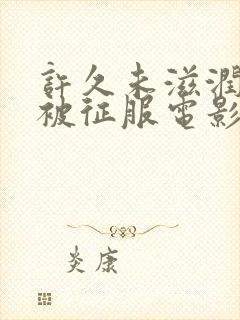 許久未滋潤
被征服電影
炎康